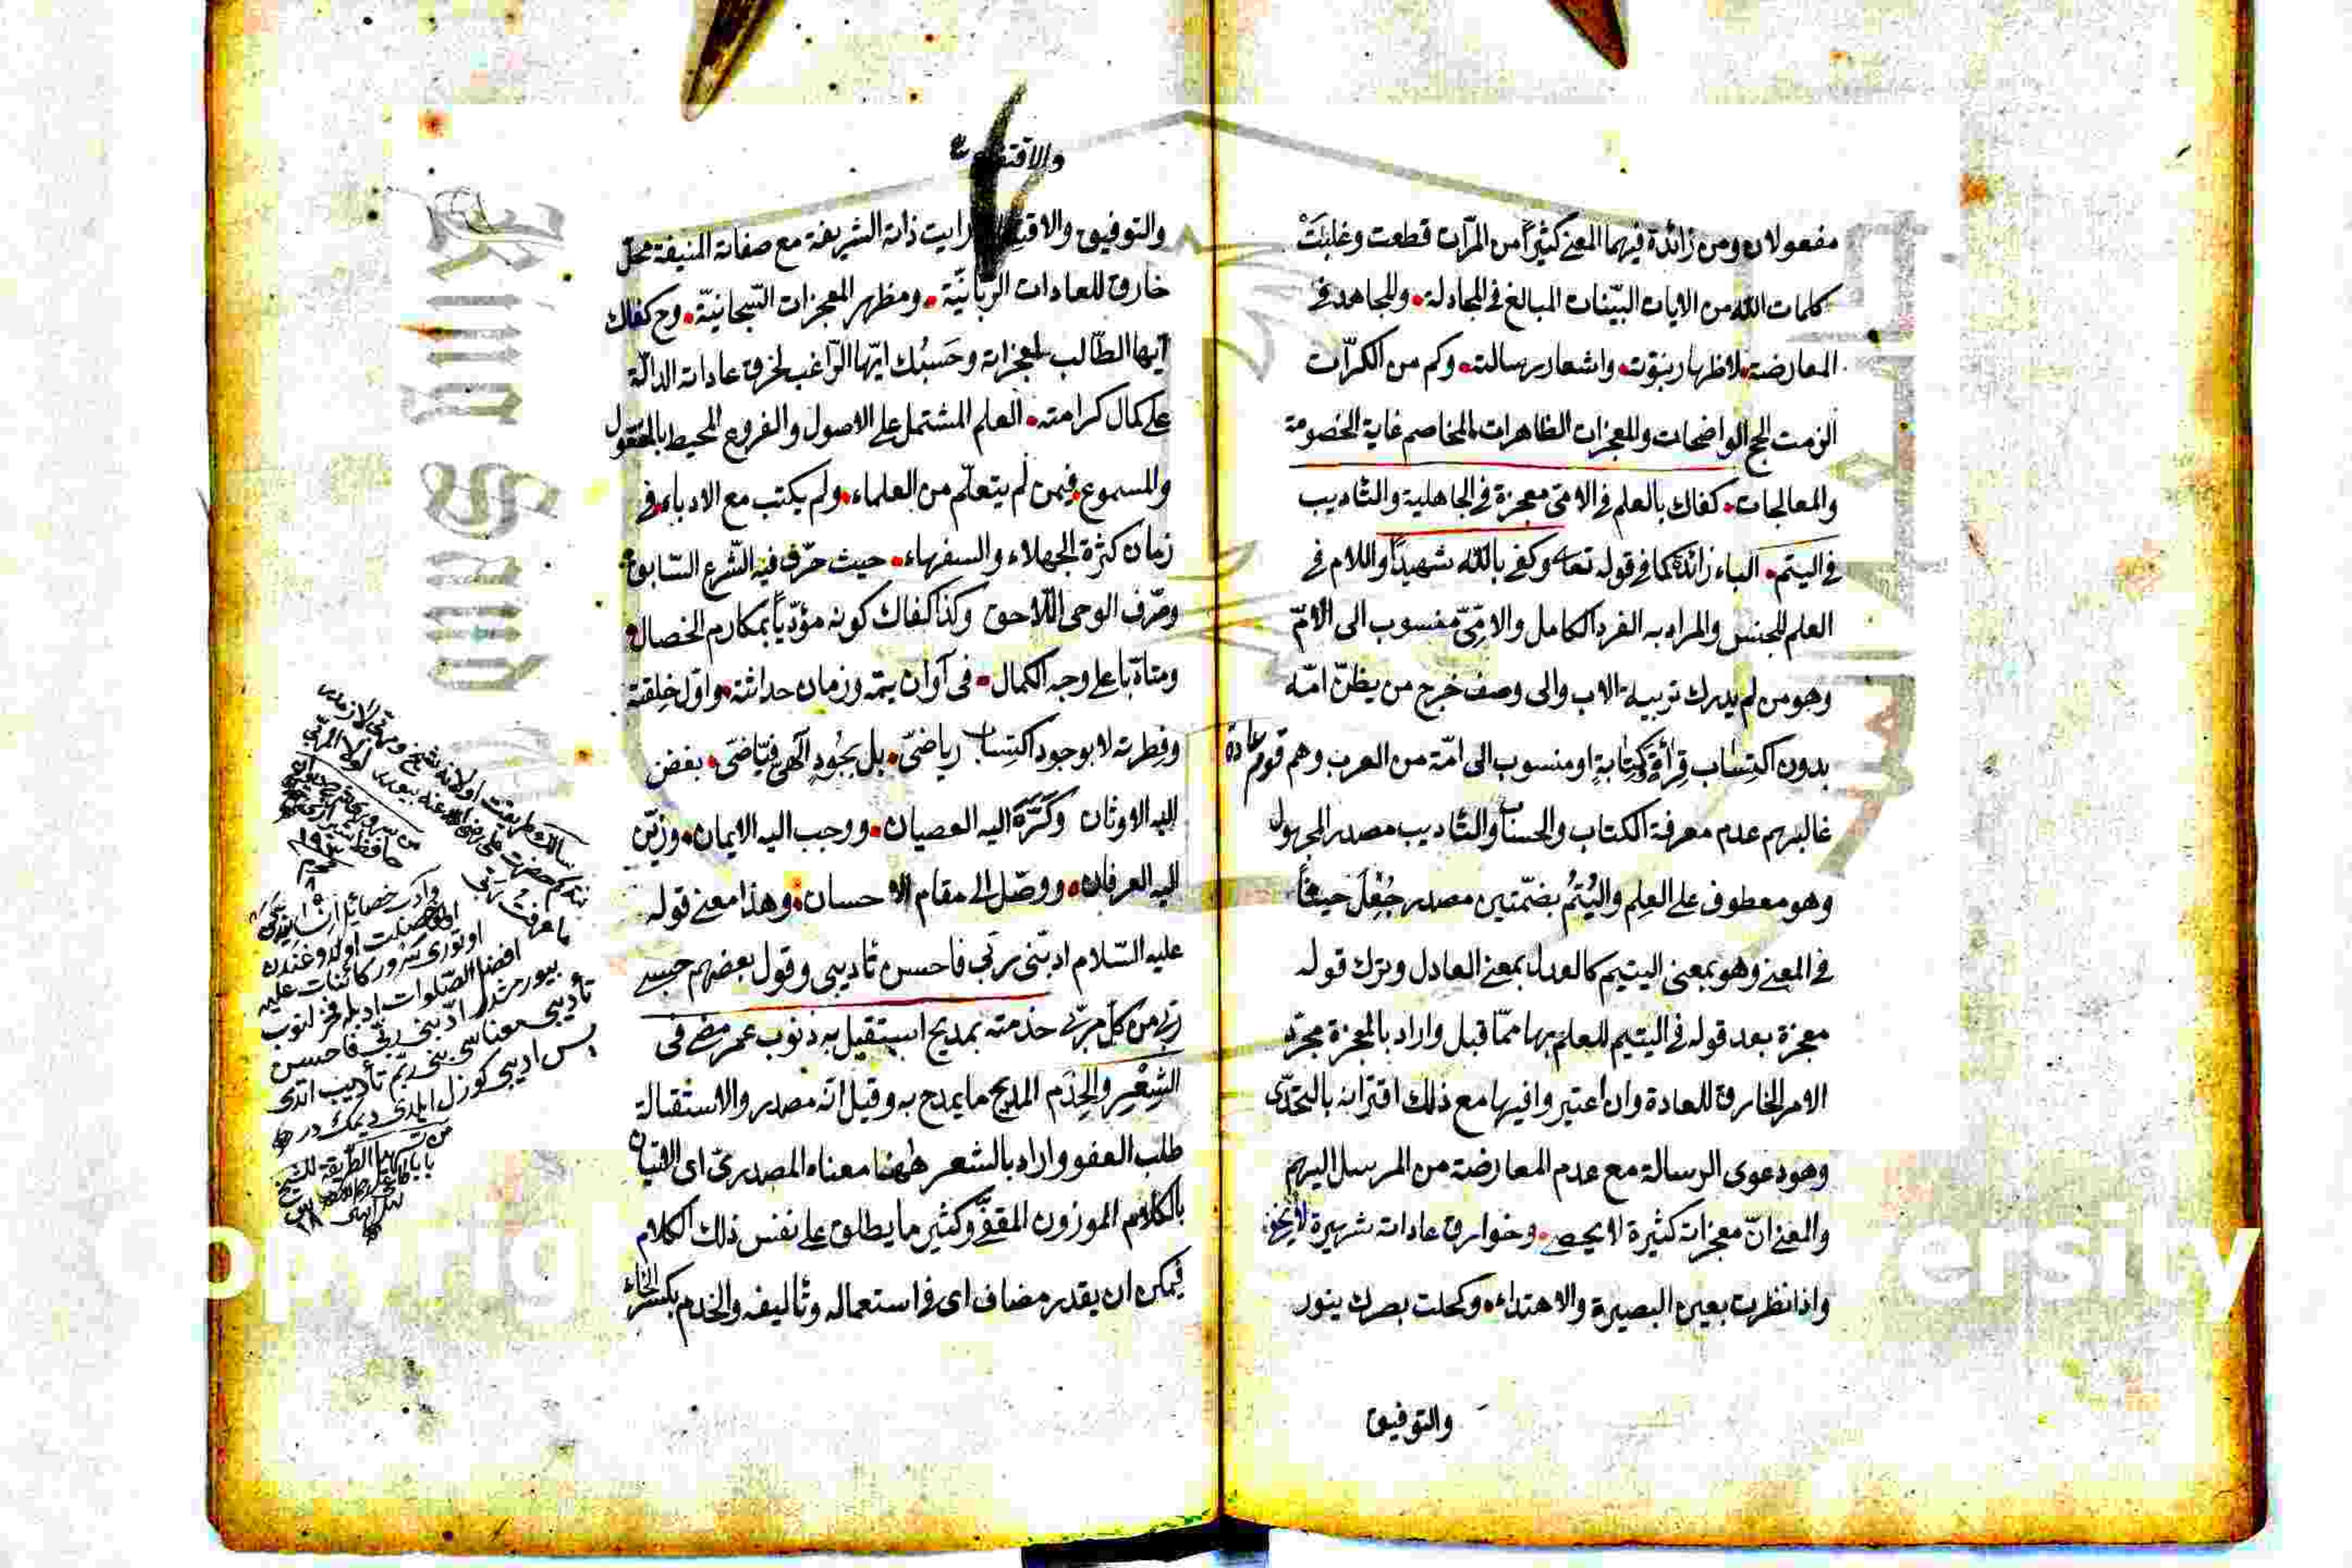 مفعولان ومن زائدة فيهما المعنى كثيراً من المرّات قطعت وغلبَتْ
كلمات الله من الايات البيّنات المبالغ فى المجادلة والمجاهد فى
المعارضة لاظهار نبوّت واشعار رسالته وكم من الكرّات
الزمت الحجج الواضحات والمعجزات الظاهرات المخاصم غاية الخصومة
والمعالجات كفاك بالعلم فى الامىّ معجزة فى الجاهلية والتأديب
فى اليتم الباء زائدة كما فى قوله تعا وكفى بالله شهيداً واللام فى
العلم للجنس والمراد به الفرد الكامل والامّىّ منسوب الى الامّ
وهو من لم يدرك تربية الاب والى وصف خرج من بطن امّه
بدون اكتساب قرأة وكتابة او منسوب الى امّة من العرب وهم قوم عادة
غالبهم عدم معرفة الكتاب والحساب والتأديب مصدر المجهول
وهو معطوف على العلم واليُتُم بضمّتين مصدر جُعِل حيثاً
فى المعنى وهو بمعنى اليتيم كالعدل بمعنى العادل وترك قوله
معجزة بعد قوله فى اليتيم للعلم بها ممّا قبل واراد بالمعجزة مجرّد
الامر الخارق للعادة وان اعتبروا فيها مع ذلك اقترانه بالتحدّى
وهو دعوى الرسالة مع عدم المعارضة من المرسل اليهم
والمعنى انّ معجزاته كثيرة لا يحصى وخوارق عاداته شهيرة لا يخفى
واذا نظرت بعين البصيرة والاهتداء وكحلت بصرك بنور
والتوفيق
والتوفيق والاقتداء رايت ذاته الشريفة مع صفاته المنيفة محلّ
خارق للعادات الربّانيّة ومظهر المعجزات السّبحانيّة وح كفاك
ايّها الطّالب لمعجزاته وحَسبُك ايّها الرّاغب لخرق عاداته الدالّة
على كمال كرامته العلم المشتمل على الاصول والفروع المحيط بالمعقول
والمسموع فيمن لم يتعلّم من العلماء ولم يكتب مع الادباء فى
زمان كثرة الجهلاء والسفهاء حيث حرّف فيه الشّرع السّابق
وصّرف الوحى اللّاحق وكذا كفاك كونه مؤدّباً بمكارم الخصال
ومتأدّبا على وجه الكمال فى آوان يتمه وزمان حداثته واوّل خلقته
وفطرته لا بوجود اكتساب رياضىّ بل بجُودٍ آلهىّ فيّاضىّ بغض
اليه الاوثان وكَرَّهَ اليه العصيان ووجب اليه الايمان وزيّن
اليه العرفان ووصّل الى مقام الاحسان وهذا معنى قوله
عليه السّلام ادبّنى ربّى فاحسن تأديبى وقول بعضهم حسبى
ربّى من كلّ مربّى خدمته بمديح استقيل به ذنوب عمر مضى فى
الشِعْرِ والخِدَمِ المديح ما يمدح به وقيل انّه مصدر والاستقالة
طلب العفو واراد بالشعر ههنا معناه المصدرىّ اى الاتيان
بالكلام الموزون المقفّى وكثير ما يطلق على نفس ذلك الكلام
فيمكن ان يقدر مضاف اى فى استعماله وتأليفه والخدم بكسر الخاء
وآدب خصائل
اوتورى سرور كائنات عليه
افضل الصّلوات
بيورمشدر ادّبنى ربّى فاحسن
تأديبى معناسى بنى ربّم تأديب اتدى
پس اديبى كوزل ايلدى ديمك در